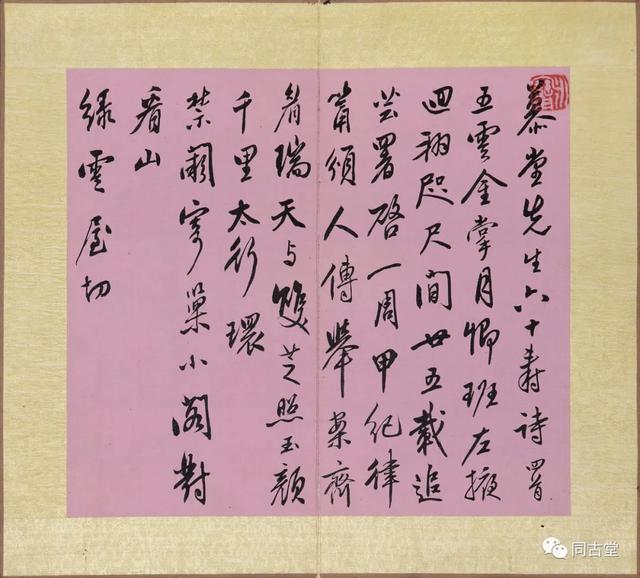 慕堂先生六十壽詩四首
五雲金掌月卿班左掖
迴翔咫尺間廿五載追
芸署啓一周甲紀律
筩頒人傳舉案齊
眉瑞天与雙芝照玉顏
千里太行環
禁闕巢小閣對
看山
綠雲屋切
同古堂